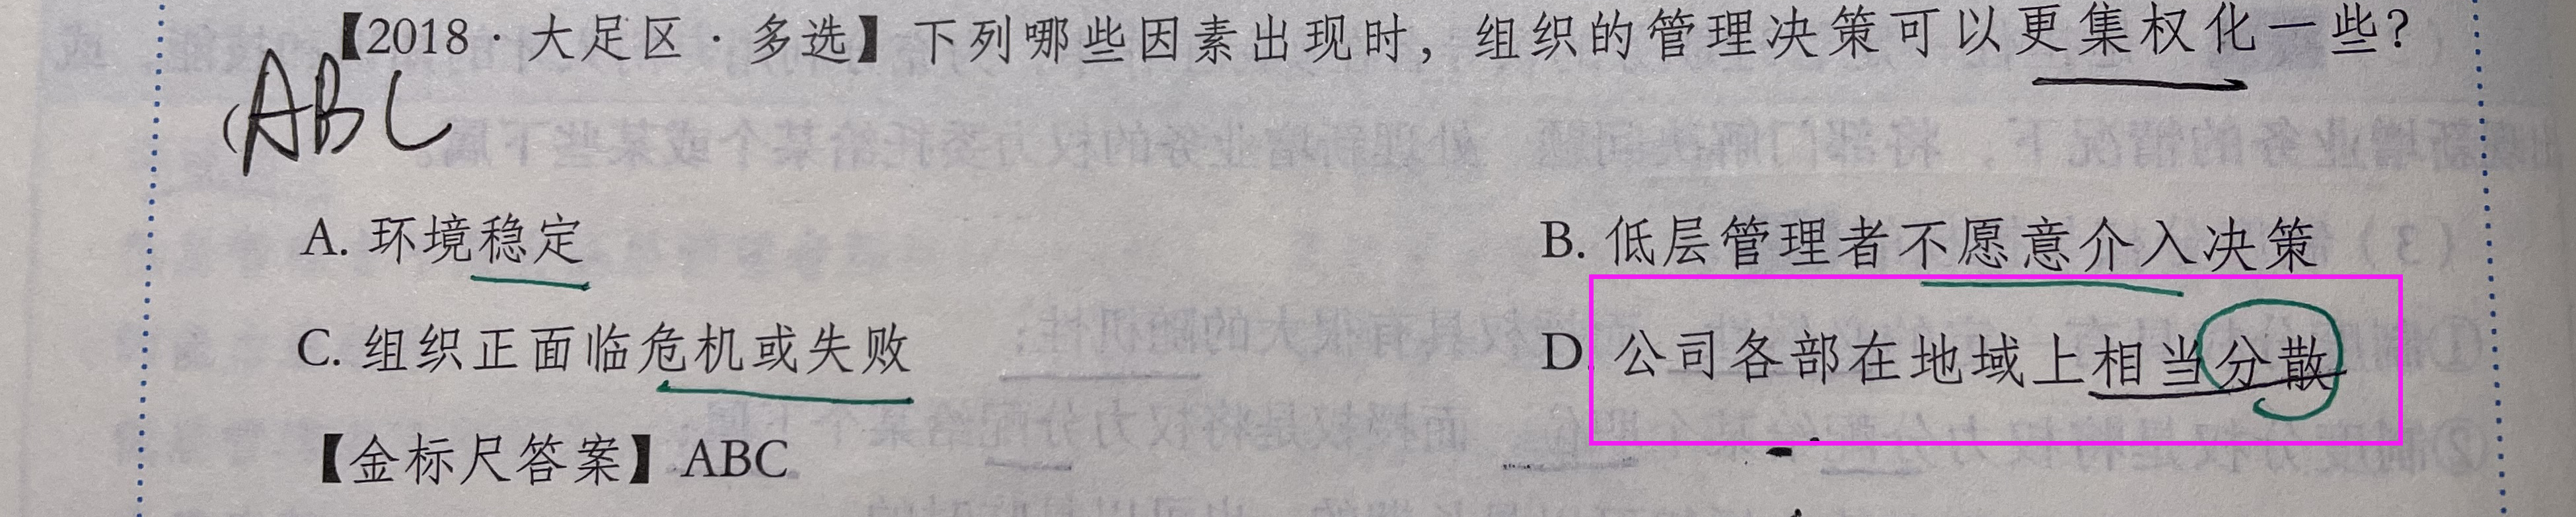 【2018·大足区·多选】下列哪些因素出现时，组织的管理决策可以更集权化一些?
ABC
A. 环境稳定
B. 低层管理者不愿意介入决策
C. 组织正面临危机或失败
D. 公司各部在地域上相当分散
【金标尺答案】ABC